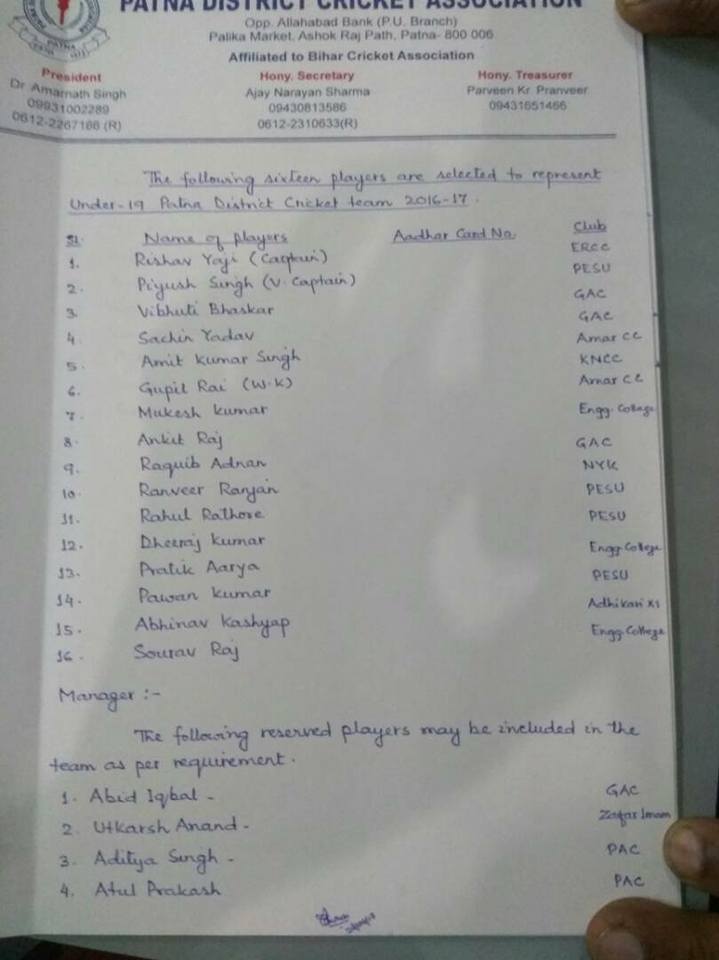 PATNA DISTRICT CRICKET ASSOCIATION
Opp. Allahabad Bank (P.U. Branch)
Palika Market, Ashok Raj Path, Patna- 800 006
Affiliated to Bihar Cricket Association
President
Dr Amarnath Singh
09931002289
0612-2267166 (R)
Hony. Secretary
Ajay Narayan Sharma
09430813586
0612-2310633(R)
Hony. Treasurer
Parveen Kr. Pranveer
09431651466
The following sixteen players are selected to represent
Under-19 Patna District Cricket team 2016-17.
Sl. Name of players Aadhar Card No. Club
1. Rishav Yaji (Captain) ERCC
2. Piyush Singh (V. Captain) PESU
3. Vibhuti Bhaskar GAC
4. Sachin Yadav GAC
5. Amit Kumar Singh Amar CC
6. Gupil Rai (W.K) KNCC
7. Mukesh Kumar Amar CC
8. Ankit Raj Engg. College
9. Raquib Adnan GAC
10. Ranveer Ranjan NYK
11. Rahul Rathore PESU
12. Dheeraj Kumar PESU
13. Pratik Aarya Engg. College
14. Pawan Kumar PESU
15. Abhinav Kashyap Adhikari XI
16. Sourav Raj Engg. College
Manager :-
The following reserved players may be included in the
team as per requirement.
1. Abid Iqbal - GAC
2. Utkarsh Anand - Zafar Imam
3. Aditya Singh - PAC
4. Atul Prakash PAC